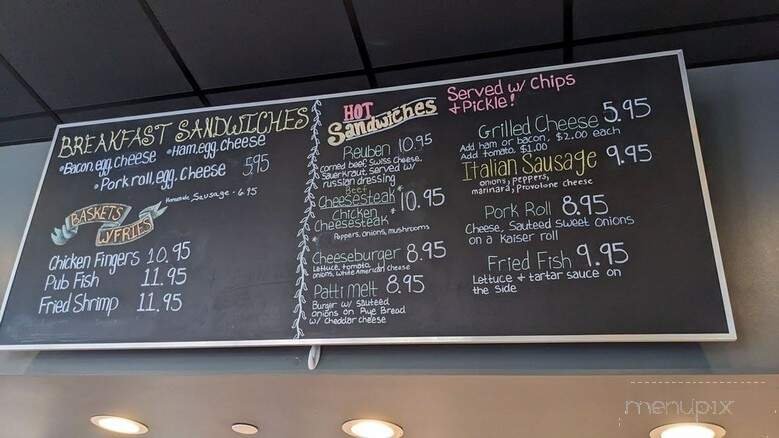 BREAKFAST SANDWICHES
• Bacon, egg, cheese • Ham, egg, cheese
• Pork roll, egg, cheese 5.95
Homemade Sausage - 6.95
BASKETS
W/FRIES
Chicken Fingers 10.95
Pub Fish 11.95
Fried Shrimp 11.95
HOT
Sandwiches
Served w/ Chips
+ Pickle!
Reuben 10.95
corned beef, Swiss Cheese,
Sauerkraut, served w/
russian dressing
Beef
Cheesesteak*
Chicken 10.95
Cheesesteak*
* Peppers, onions, mushrooms
Cheeseburger 8.95
Lettuce, tomato,
onions, White American cheese
Patti Melt 8.95
Burger w/ sauteed
onions on Rye Bread
w/ Cheddar cheese
Grilled Cheese 5.95
Add ham or bacon, $2.00 each
Add tomato, $1.00
Italian Sausage 9.95
onions, Peppers,
marinara, Provolone cheese
Pork Roll 8.95
Cheese, Sauteed sweet onions
on a Kaiser roll
Fried Fish 9.95
Lettuce + tartar sauce on
the side
menupix